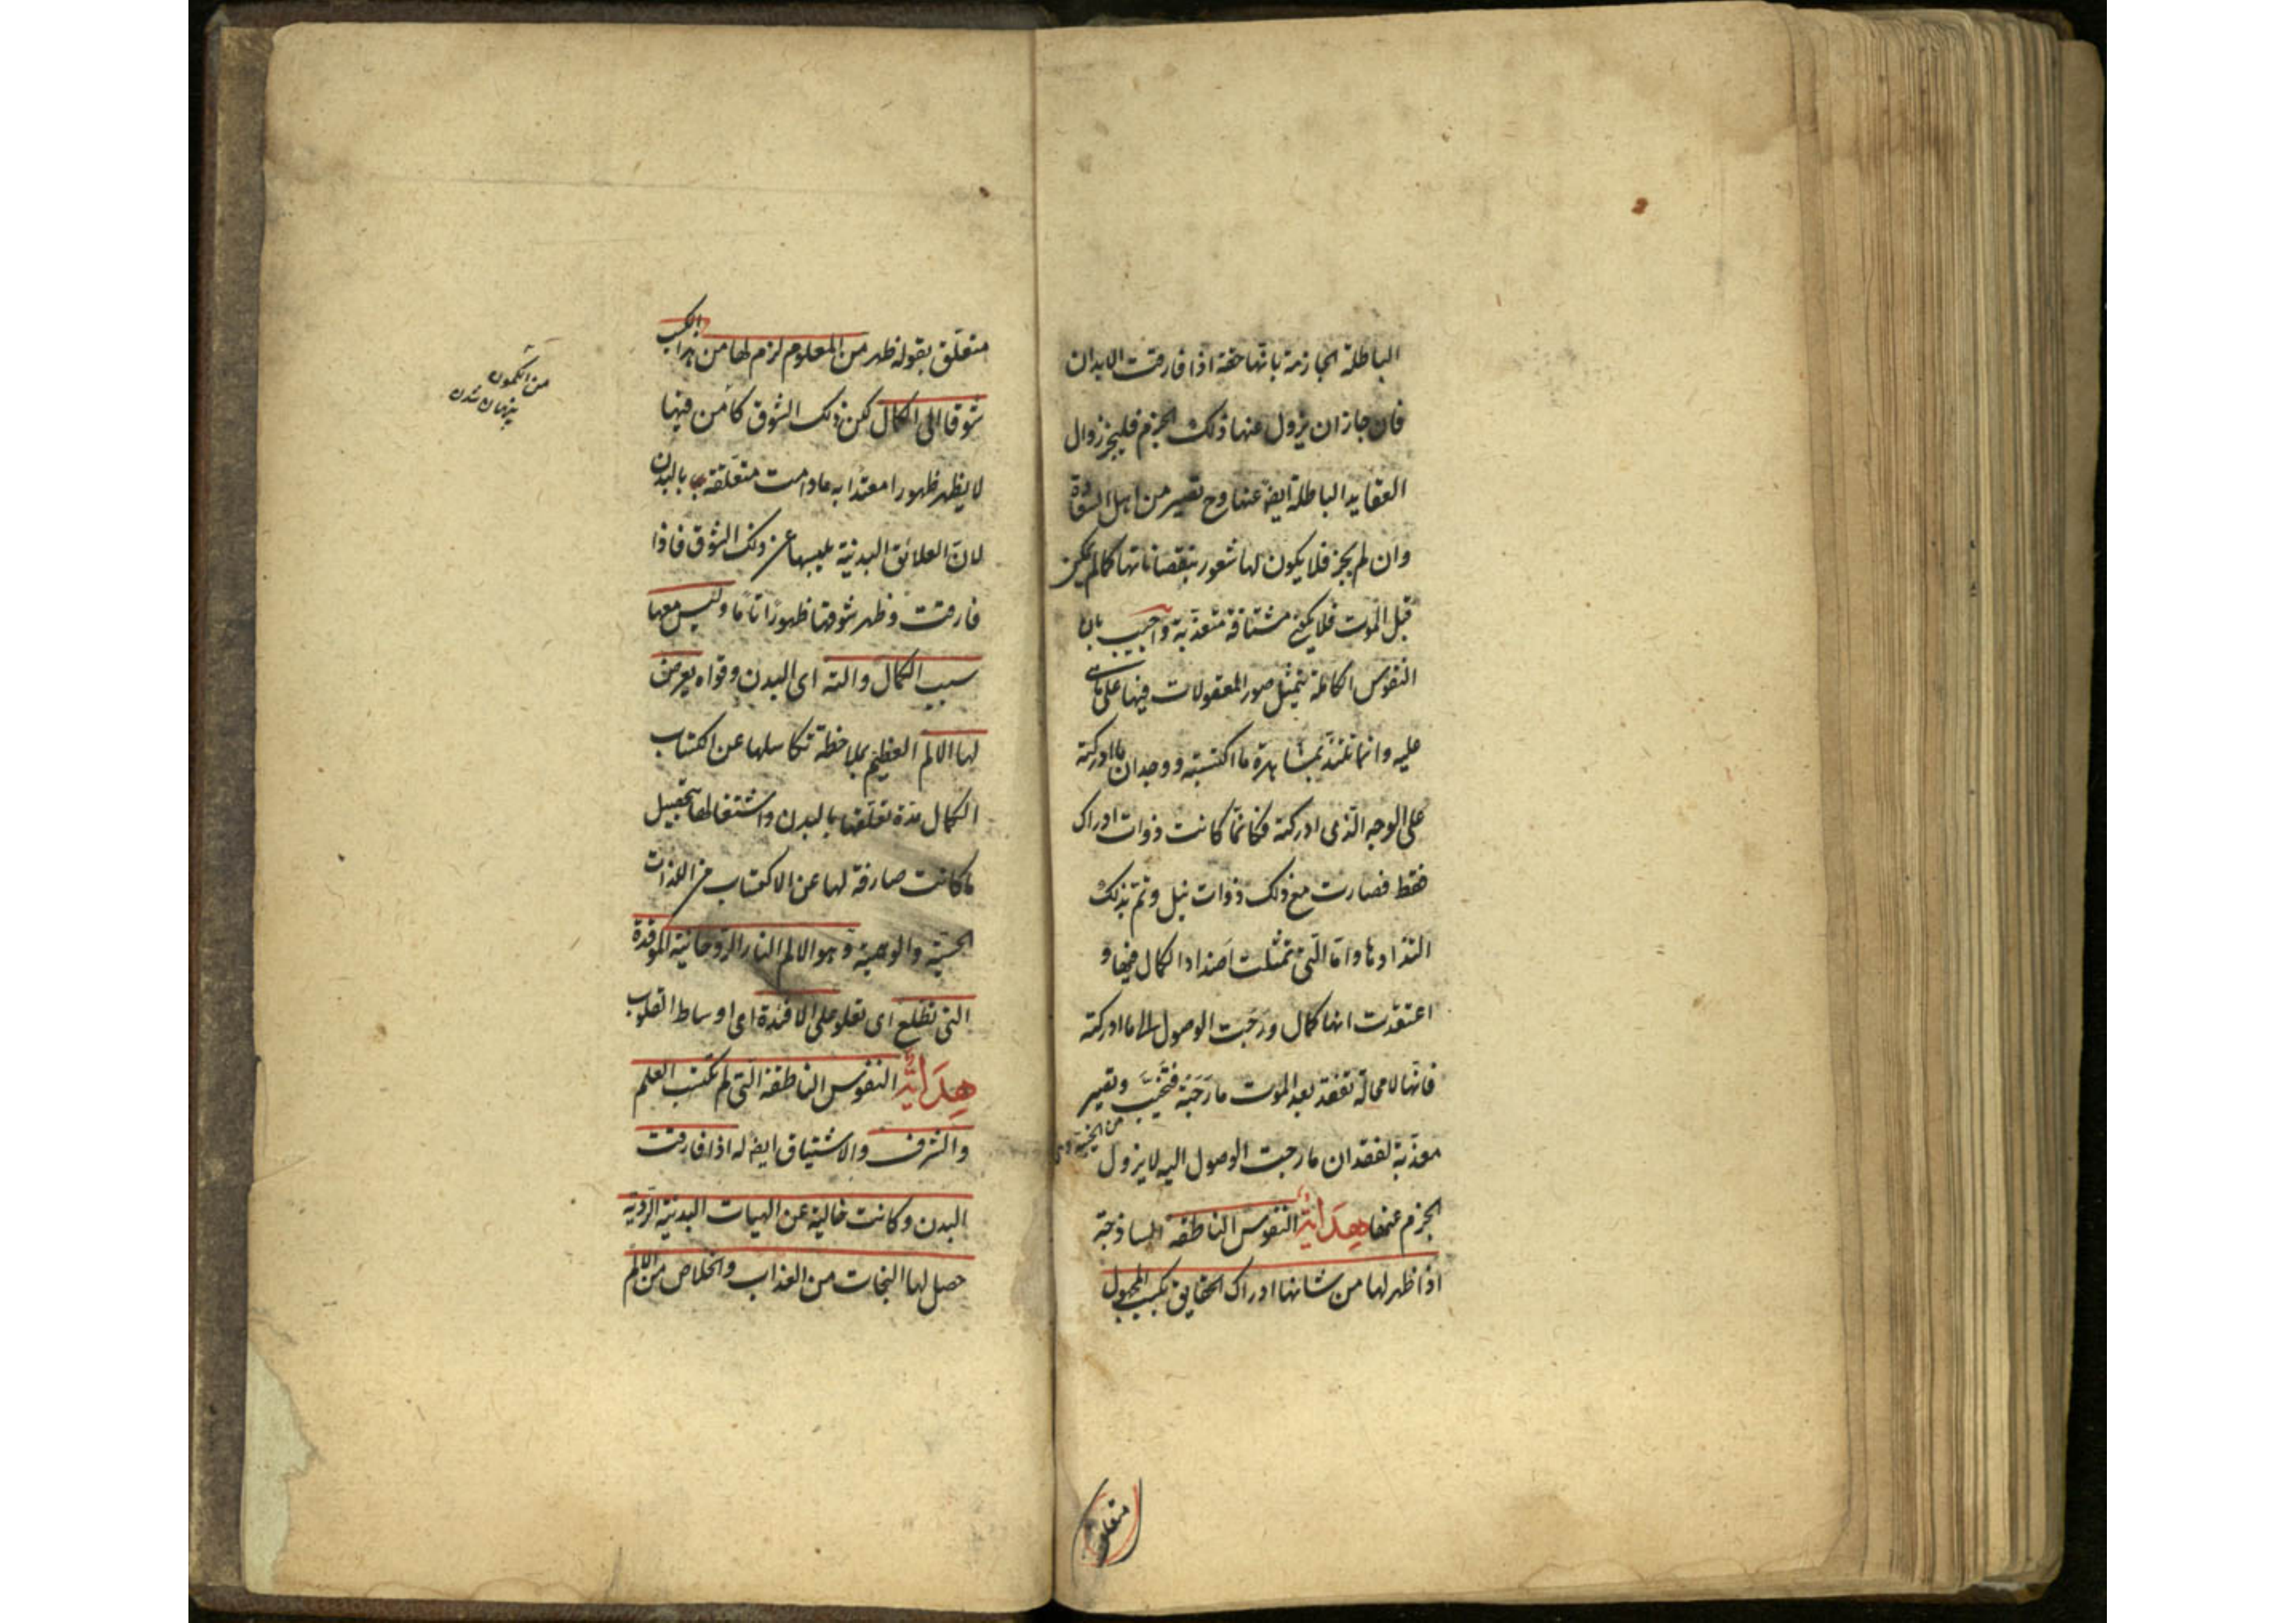 الباطلة الجازمة بانها حقة اذا فارقت الابدان
فان جاز ان يزول عنها ذلك الجزم فليجز زوال
العقايد الباطلة ايضا عنها وح تصير من اهل السعادة
وان لم يجز فلا يكون لها شعور بنقصاناتها كما لم يكن
قبل الموت فلا يكون مشتاقة متعذبة واجيب بان
النفوس الكاملة يتمثل صور المعقولات فيها على ما هى
عليه وانما تلتذ بمشاهدة ما اكتسبته ووجدان ما ادركته
على الوجه الذى ادركته فكانما كانت ذوات ادراك
فقط فصارت مع ذلك ذوات نيل وتم بذلك
التذاذها واما التى تمثلت اضداد الكمال فيها و
اعتقدت انها كمال ورجت الوصول الى ما ادركته
فانها لا محالة تفقد بعد الموت ما رجته فتخيب وتصير
معذبة لفقدان ما رجت الوصول اليه لا يزول
الجزم عنها هداية النفوس الناطقة الساذجة
اذا ظهر لها من شانها ادراك الحقايق بكسب المجهول
متعلق
متعلق بقوله ظهر من المعلوم لزم لها من هذا الكسب
شوقا الى الكمال لكن ذلك الشوق كامن فيها
لا يظهر ظهورا معتدا به مادامت متعلقة بالبدن
لان العلائق البدنية يلهيها عن ذلك الشوق فاذا
فارقت وظهر شوقها ظهورا تاما وليس معها
سبب الكمال والته اى البدن وقواه يعرض
لها الالم العظيم بملاحظة تكاسلها عن اكتساب
الكمال مدة تعلقها بالبدن واشتغالها بتحصيل
ما كانت صارفة لها عن الاكتساب من اللذات
الحسية والوهمية وهو الالم النار الروحانية الموقدة
التى تطلع اى تعلو على الافئدة اى اوساط القلوب
هداية النفوس الناطقة التى لم تكتسب العلم
والشرف والاشتياق ايضا له اذا فارقت
البدن وكانت خالية عن الهيات البدنية الردية
حصل لها النجات من العذاب والخلاص من الالم
من الكمون
پنهان شدن